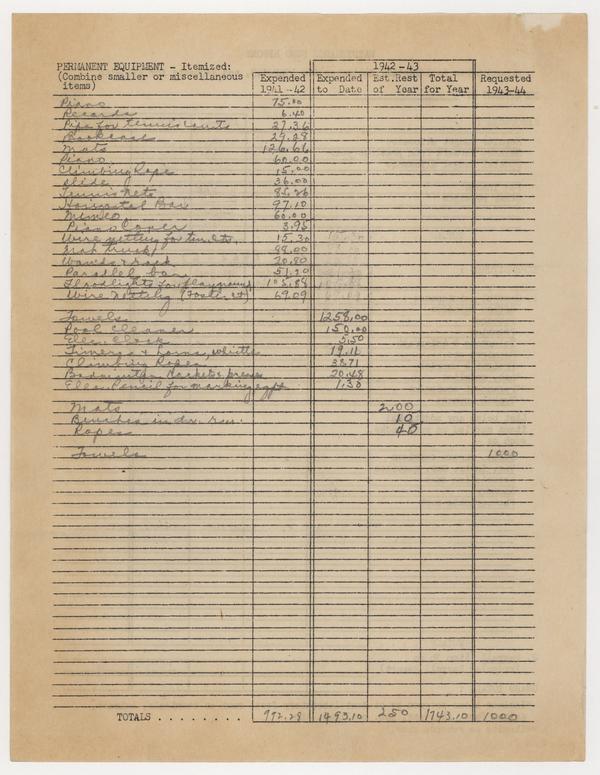 PERMANENT EQUIPMENT - Itemized:
(Combine smaller or miscellaneous items)
1942-43
Expended 1941-42
Expended to Date
Est. Rest of Year
Total for Year
Requested 1943-44
Piano 75.00
Records 6.40
Pipe for tennis courts 27.36
Backeast 29.28
Mats 126.66
Piano 60.00
Climbing Rope 15.00
Slide 36.00
Tennis Nets 85.26
Horizontal Bar 97.10
Mimeo. 60.00
Piano Cover 3.95
Wire netting for ten. cts. 15.30
truck 98.00
Wands & rack 20.80
Parallel bar 51.20
Floodlights for playground 105.88
Wire netting (Foster ct) 69.09
Towels 1258.00
Pool Cleaner 150.00
Elec. Clock 5.50
Timers & horns, whistle 19.11
Climbing Ropes 38.71
Badminton Rackets & presses 20.48
Elec. Pencil for marking eqpt 1.30
Mats 200
Benches in dr. rm. 10
Ropes 40
Towels 1000
TOTALS . . . . . . . . 992.28 1493.10 250 1743.10 1000